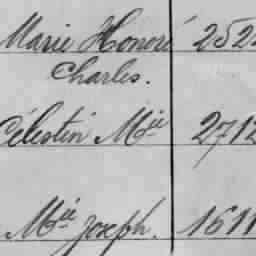 Marie Honoré 252
Charles.
Célestin Mie 2712
Mie Joseph. 1611